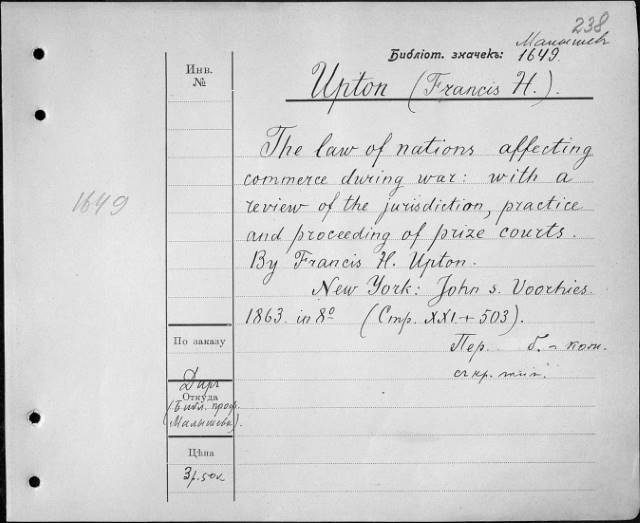 238
Малышев
Библіот. значекъ: 1649.
Инв.
№
Upton (Francis H.).
The law of nations affecting
commerce during war: with a
1649
review of the jurisdiction, practice
and proceeding of prize courts.
By Francis H. Upton.
New York: John s. Voorhies.
1863. in 8º (Стр. XXI + 503).
По заказу
Пер. б. - кож.
съ кр. тит.
Даръ
Откуда
(Библ. проф.
Малышева).
Цѣна
3 р. 50 к